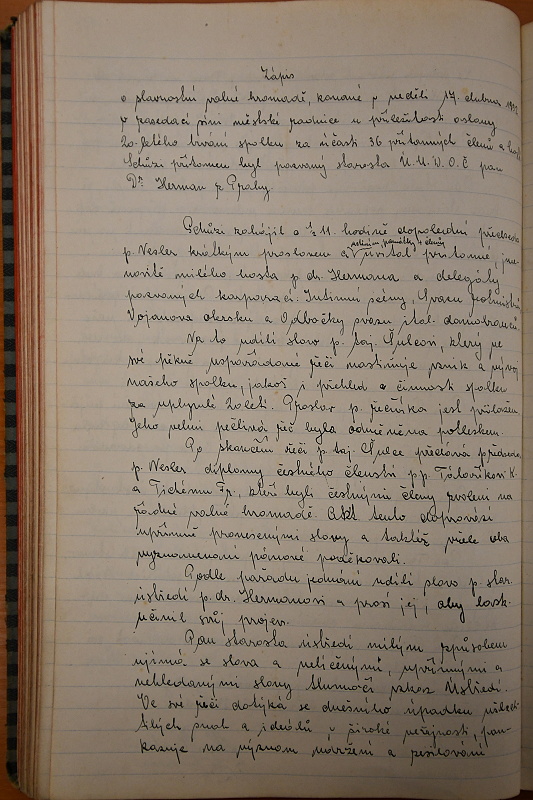 Zápis
o slavnostní valné hromadě, konané v neděli 17. dubna
v zasedací síni městské radnice u příležitosti oslavy
20-letého trvání spolku za účasti 36 přítomných členů a
Schůzi přítomen byl pozvaný starosta Ú.M.W.O.Č pan
Dr. Herman z Prahy.
Schůzi zahájil o ½ 11. hodině dopolední předseda
p. Vesler krátkým proslovem a uvítal přítomné, jme-
novitě milého hosta p. dr. Hermana a delegáty
pozvaných korporací: Intimní scény, Svazu
Vojanova okrsku a Odbočky svazu ital. domobranců.
Na to udílí slovo p. taj. Šulcovi, který ve
své pěkně uspořádané řeči nastiňuje vznik a vývoj
našeho spolku, jakož i přehled o činnosti spolku
za uplynulé 20letí. Proslov p. řečníka jest přiložen.
Jeho velmi pečlivá řeč byla odměněna potleskem.
Po skončení řeči p. taj. Šulce předává předseda
p. Vesler diplomy čestného členství pp. K.
a Tichému Fr., kteří byli čestnými členy zvoleni na
řádné valné hromadě. Akt tento doprovází
upřímně pronesenými slovy a taktéž vřele oba
vyznamenaní pánové poděkovali.
Podle pořadu jednání udílí slovo p. star.
ústředí p. dr. Hermanovi a prosí jej, aby lask.
učinil svůj projev.
Pan starosta ústředí milým způsobem
ujímá se slova a nelíčenými, upřímnými a
nehledanými slovy tlumočí vzkaz Ústředí.
Ve své řeči dotýká se dnešního úpadku ušlech-
tilých snah a ideálů v široké veřejnosti, pou-
kazuje na význam udržení a zesilování